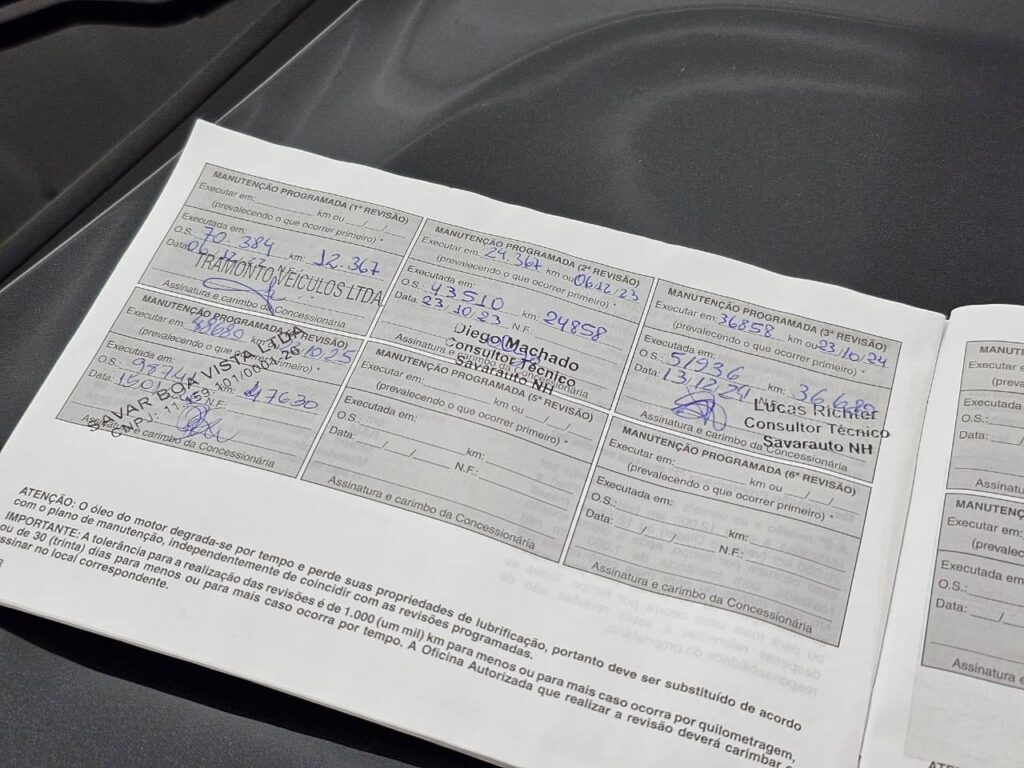 MANUTENÇÃO PROGRAMADA (1ª REVISÃO)
Executar em: km ou / /
(prevalecendo o que ocorrer primeiro) *
Executada em:
O.S.: 70.384 km: 12.367
Data: 06.12.22
TRAMONTO VEÍCULOS LTDA
Assinatura e carimbo da Concessionária
MANUTENÇÃO PROGRAMADA (2ª REVISÃO)
Executar em: 24.367 km ou 06.12.23
(prevalecendo o que ocorrer primeiro) *
Executada em:
O.S.: 43510 km: 24858
Data: 23/10/23 N.F.:
Diego Machado
Consultor Técnico
Savarauto NH
Assinatura e carimbo da Concessionária
MANUTENÇÃO PROGRAMADA (3ª REVISÃO)
Executar em: 36858 km ou 23/10/24
(prevalecendo o que ocorrer primeiro) *
Executada em:
O.S.: 51936 km: 36.688
Data: 13/12/24
Lucas Richter
Consultor Técnico
Savarauto NH
Assinatura e carimbo da Concessionária
MANUTENÇÃO PROGRAMADA REVISÃO)
Executar em: 48680
primeiro) *
Executada em:
O.S.: km: 47630
Data: N.F.:
SAVAR BOA VISTA LTDA
CNPJ:
Assinatura e carimbo da Concessionária
MANUTENÇÃO PROGRAMADA (5ª REVISÃO)
Executar em: km ou / /
(prevalecendo o que ocorrer primeiro) *
Executada em:
O.S.: km:
Data: / / N.F.:
Assinatura e carimbo da Concessionária
MANUTENÇÃO PROGRAMADA (6ª REVISÃO)
Executar em: km ou / /
(prevalecendo o que ocorrer primeiro) *
Executada em:
O.S.: km:
Data: / / N.F.:
Assinatura e carimbo da Concessionária
ATENÇÃO: O óleo do motor degrada-se por tempo e perde suas propriedades de lubrificação, portanto deve ser substituído de acordo
com o plano de manutenção, independentemente de coincidir com as revisões programadas.
IMPORTANTE: A tolerância para a realização das revisões é de 1.000 (um mil) km para menos ou para mais caso ocorra por quilometragem,
ou de 30 (trinta) dias para menos ou para mais caso ocorra por tempo. A Oficina Autorizada que realizar a revisão deverá carimbar e
assinar no local correspondente.
MANUTENÇ
Executar em:
(prevalec
Executada e
O.S.:
Data: /
Assinatura
MANUTENÇ
Executar em:
(prevalece
Executada em
O.S.:
Data: /
Assinatura e
ATEN